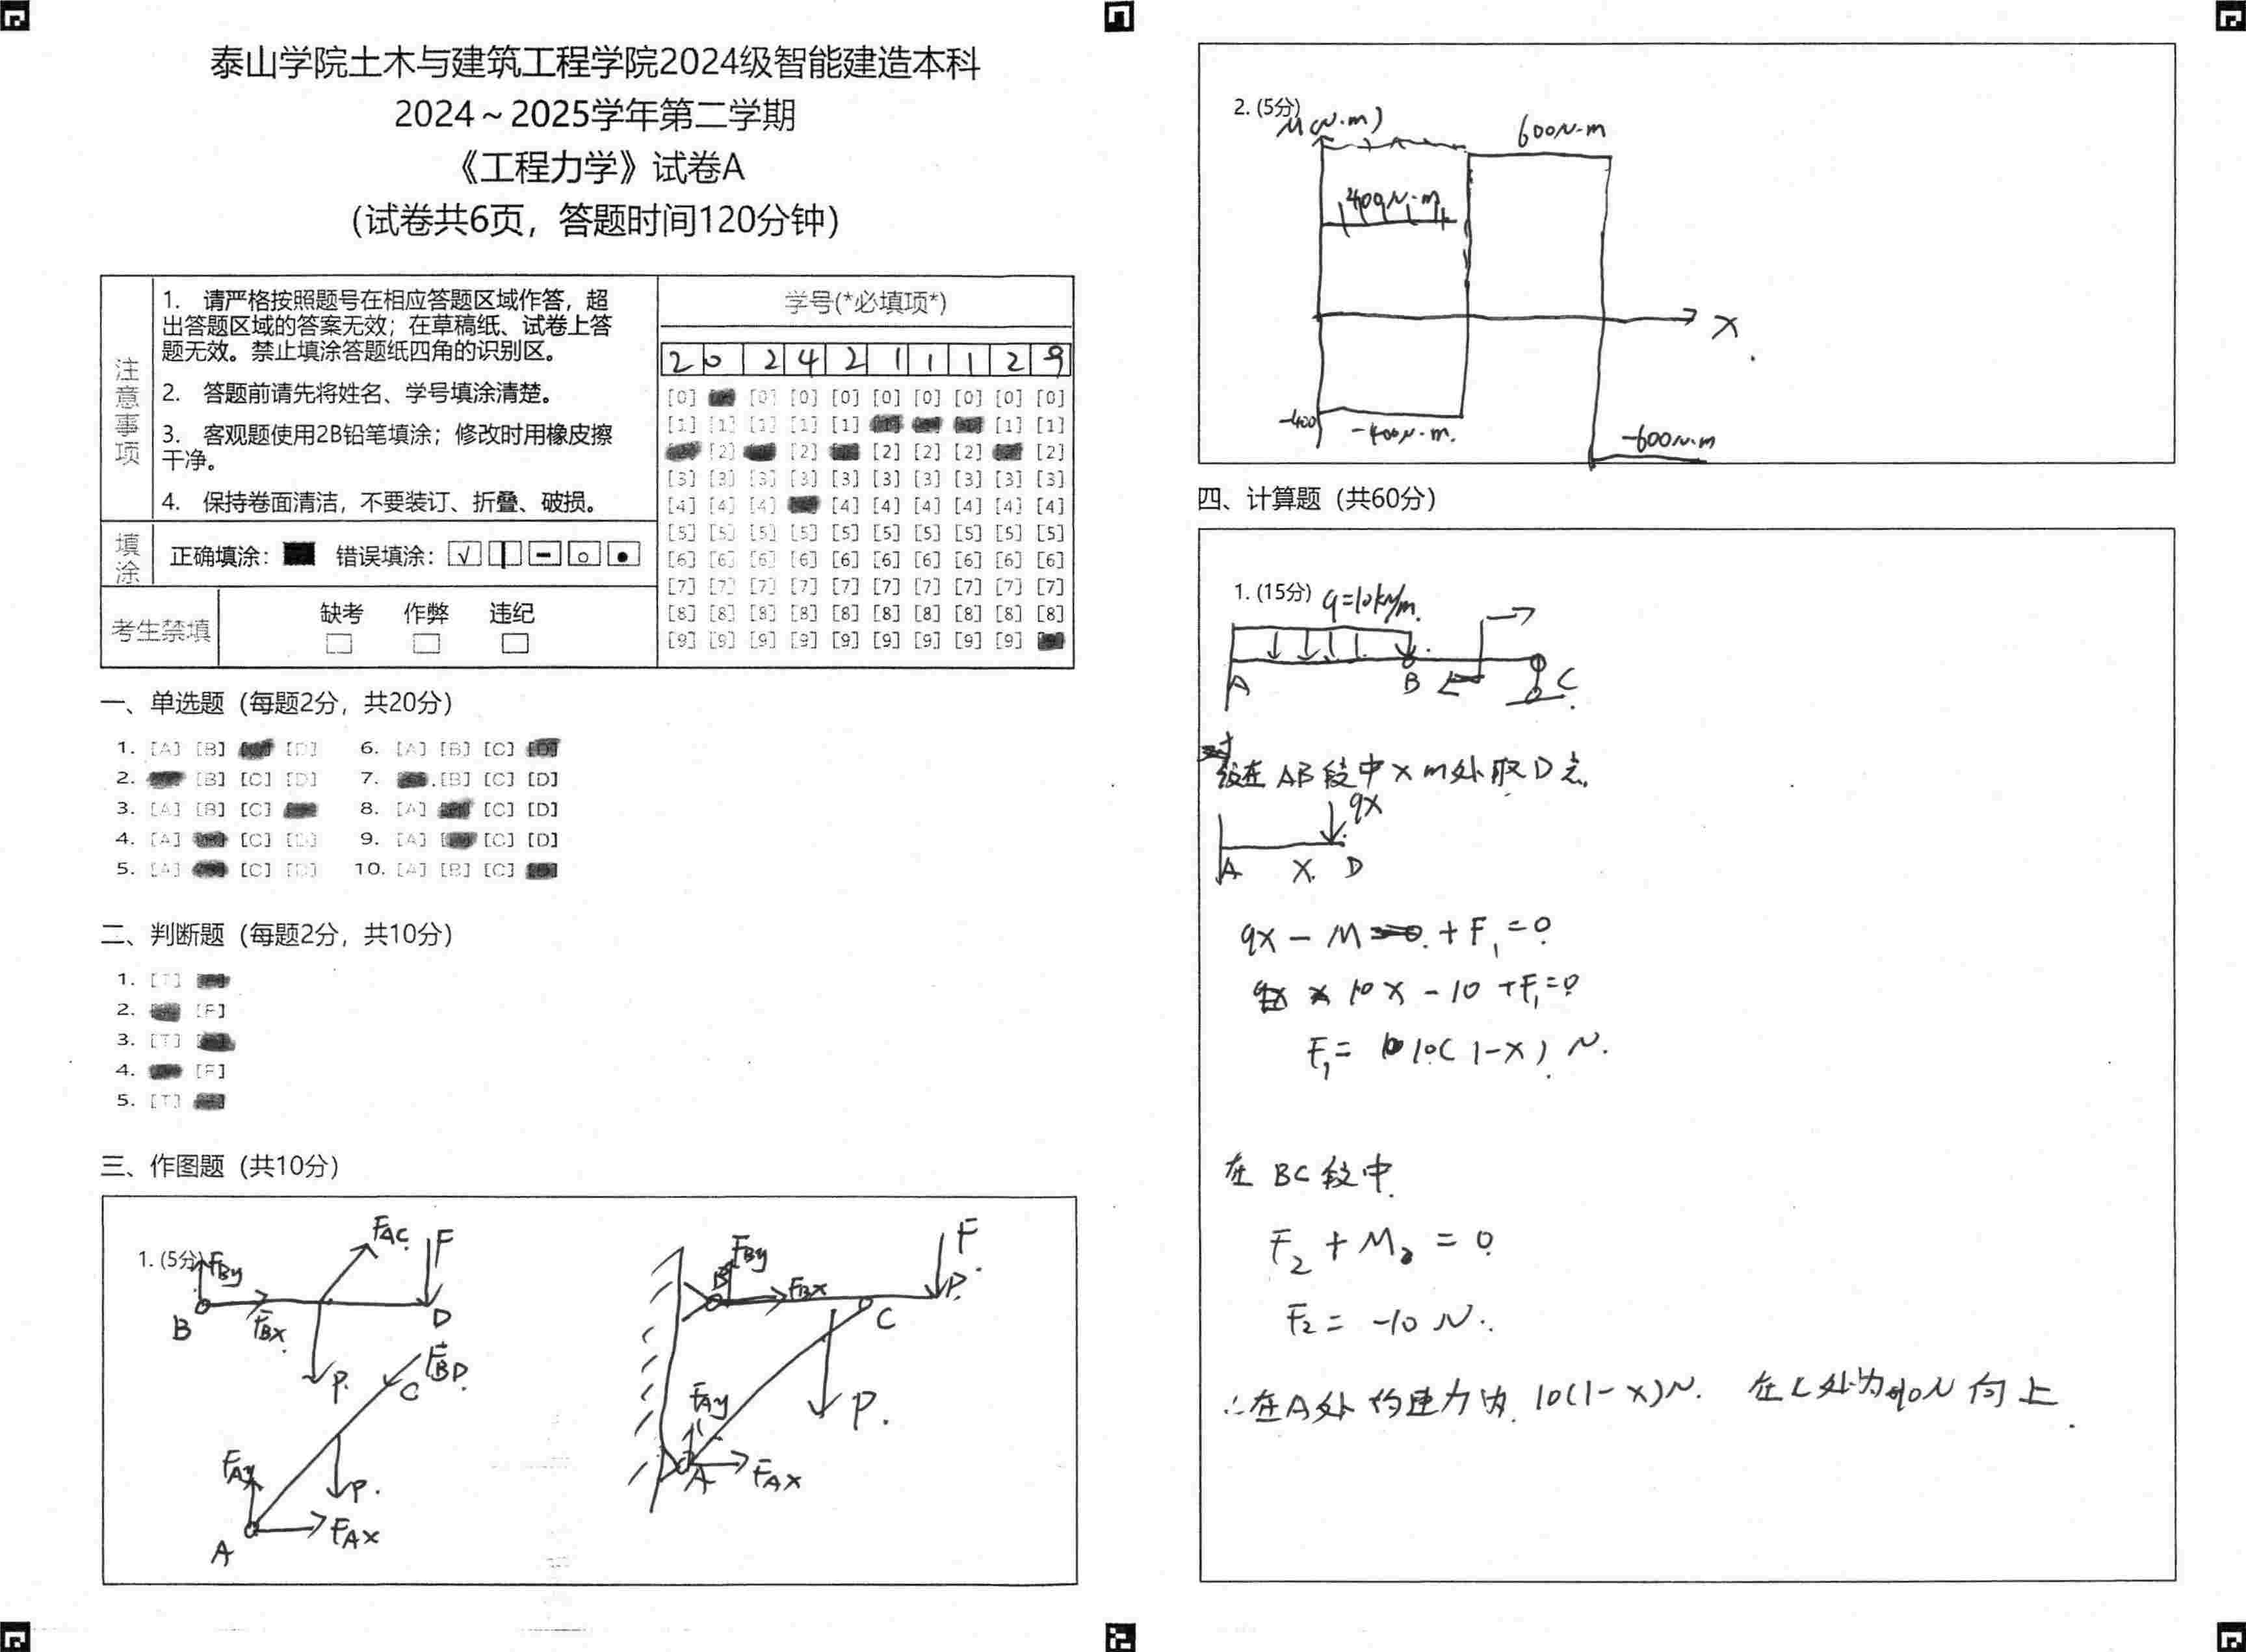 泰山学院土木与建筑工程学院2024级智能建造本科
2024～2025学年第二学期
《工程力学》试卷A
(试卷共6页，答题时间120分钟)
注意事项
1. 请严格按照题号在相应答题区域作答，超
出答题区域的答案无效；在草稿纸、试卷上答
题无效。禁止填涂答题纸四角的识别区。
2. 答题前请先将姓名、学号填涂清楚。
3. 客观题使用2B铅笔填涂；修改时用橡皮擦
干净。
4. 保持卷面清洁，不要装订、折叠、破损。
填涂
正确填涂： 错误填涂：
考生禁填
缺考 作弊 违纪
学号(*必填项*)
2 0 2 4 2 1 1 1 2 9
[0] [0] [0] [0] [0] [0] [0] [0] [0]
[1] [1] [1] [1] [1] [1] [1]
[2] [2] [2] [2] [2] [2]
[3] [3] [3] [3] [3] [3] [3] [3] [3] [3]
[4] [4] [4] [4] [4] [4] [4] [4] [4]
[5] [5] [5] [5] [5] [5] [5] [5] [5] [5]
[6] [6] [6] [6] [6] [6] [6] [6] [6] [6]
[7] [7] [7] [7] [7] [7] [7] [7] [7] [7]
[8] [8] [8] [8] [8] [8] [8] [8] [8] [8]
[9] [9] [9] [9] [9] [9] [9] [9] [9]
一、单选题（每题2分，共20分）
1. [A] [B] [D] 6. [A] [B] [C] [D]
2. [B] [C] [D] 7. [B] [C] [D]
3. [A] [B] [C] 8. [A] [C] [D]
4. [A] [C] [D] 9. [A] [C] [D]
5. [A] [C] [D] 10. [A] [B] [C]
二、判断题（每题2分，共10分）
1. [T]
2. [F]
3. [T]
4. [F]
5. [T]
三、作图题（共10分）
1. (5分)
FBy
FAC
F
B
FBx
D
P
C
FBD
FAy
P
A
FAx
FBy
F
B
FBx
D
C
P
FAy
A
FAx
2. (5分)
M(N·m)
600N·m
400N·m
x
-400
-400N·m
-600N·m
四、计算题（共60分）
1. (15分)
q=10kN/m
A B C
设在AB段中x m处取D点
qx
A x D
qx - M + F₁ = 0
10x - 10 + F₁ = 0
F₁ = 10(1-x) N.
在BC段中
F₂ + M₂ = 0
F₂ = -10 N.
∴在A处约束力为 10(1-x)N. 在C处为10N向上